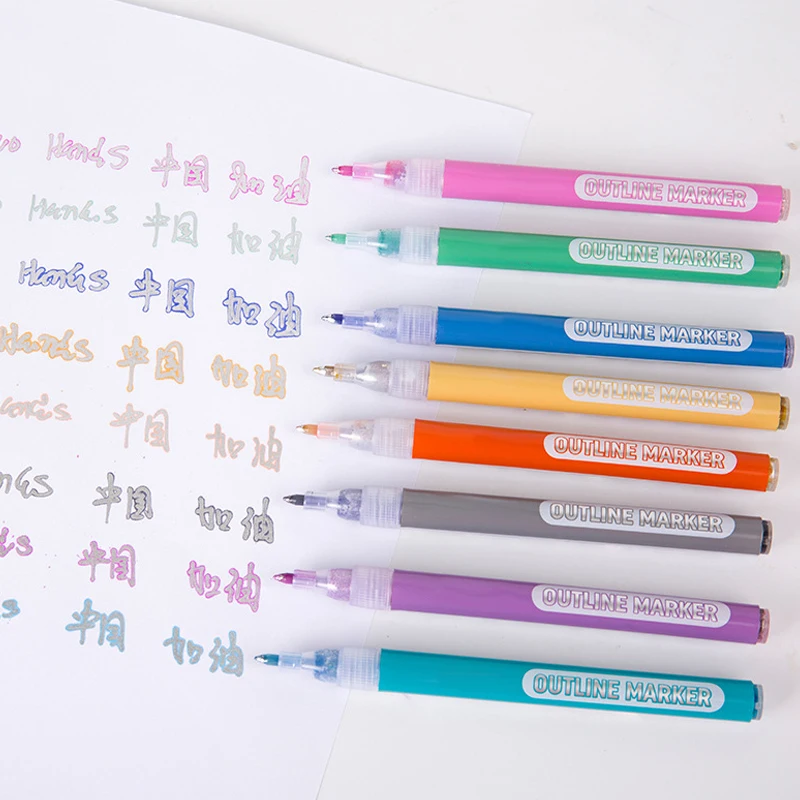 Hands 中国 加油 OUTLINE MARKER
Hands 中国 加油 OUTLINE MARKER
Hands 中国 加油 OUTLINE MARKER
Hands 中国 加油 OUTLINE MARKER
中国 加油 OUTLINE MARKER
中国 加油 OUTLINE MARKER
中国 加油 OUTLINE MARKER
中国 加油 OUTLINE MARKER